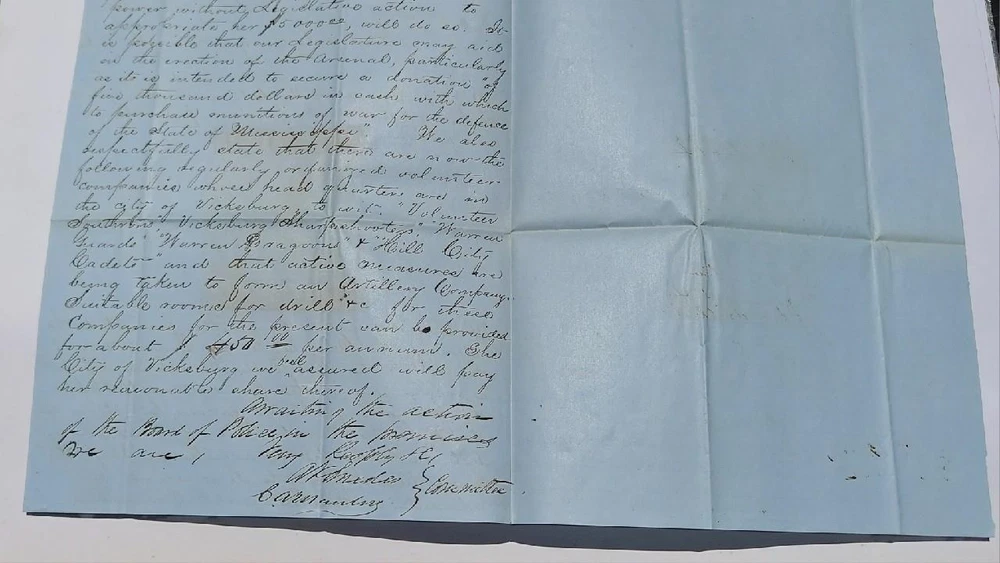 power without Legislative action to
appropriate her $5000 00, will do so. It
is possible that our Legislature may aid
in the erection of the Arsenal, particularly
as it is intended to secure a donation "of
five thousand dollars in cash with which
to purchase munitions of war for the defence
of the State of Mississippi." We also
respectfully state that there are now the
following regularly organized volunteer
companies whose head quarters are in
the city of Vicksburg, to wit: "Volunteer
Southrons" "Vicksburg Sharpshooters" "Warren
Guards" "Warren Dragoons" & "Hill City
Cadets" and that active measures are
being taken to form an Artillery Company.
Suitable rooms for drill &c for these
Companies for the present can be provided
for about $450 00 per annum. The
City of Vicksburg we feel assured will pay
her reasonable share thereof.
Awaiting the action
of the Board of Police, in the premises
we are, Very Respfly &c,
Committee